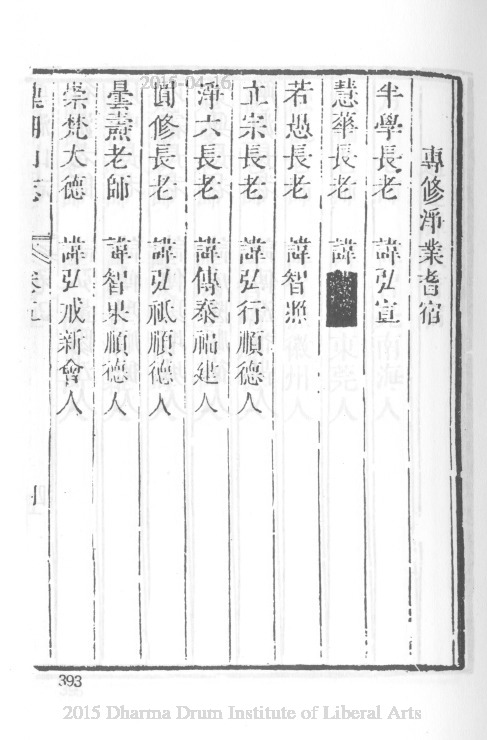 專修淨業耆宿
半學長老 諱弘宣南海人
慧華長老 諱 東莞人
若愚長老 諱智 徽州人
立宗長老 諱弘行順德人
淨六長老 諱傳泰福建人
圓修長老 諱弘祗順德人
曇燾老師 諱智果順德人
崇梵大德 諱弘戒新會人
山志 卷五
393
2015-04-16
2015 Dharma Drum Institute of Liberal Arts